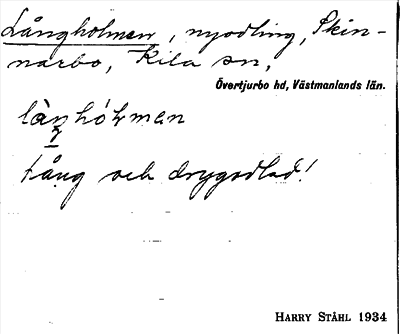 Långholmen, nyodling, Skin-
narbo, Kila sn,
Övertjurbo hd, Västmanlands län.
làŋhól̥men
tång och drygodlad!
HARRY STÅHL 1934